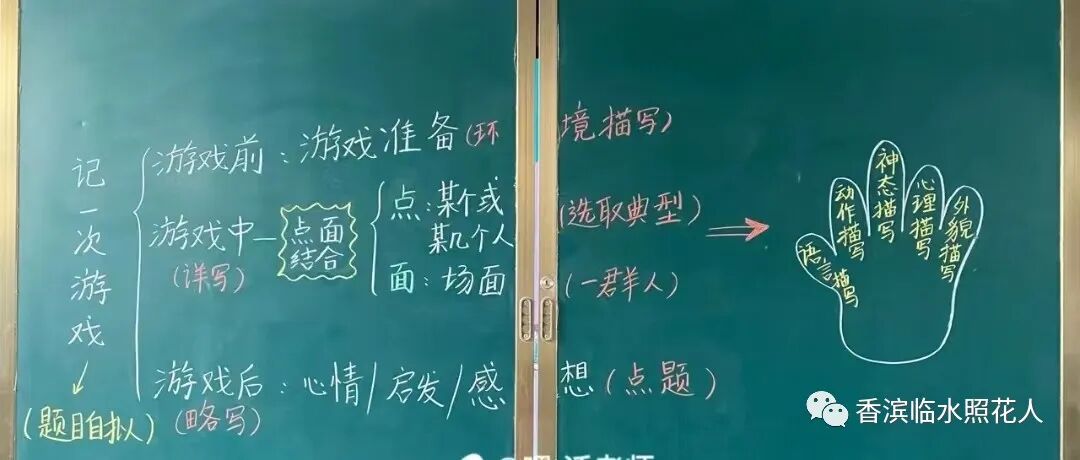 记一次游戏
(题目自拟)
游戏前:游戏准备(环境描写)
游戏中
(详写)
点面
结合
点:某个或
某几个人
(选取典型)
面:场面
(一群人)
游戏后:心情/启发/感想(点题)
(略写)
语言描写
动作描写
神态描写
心理描写
外貌描写
香滨临水照花人